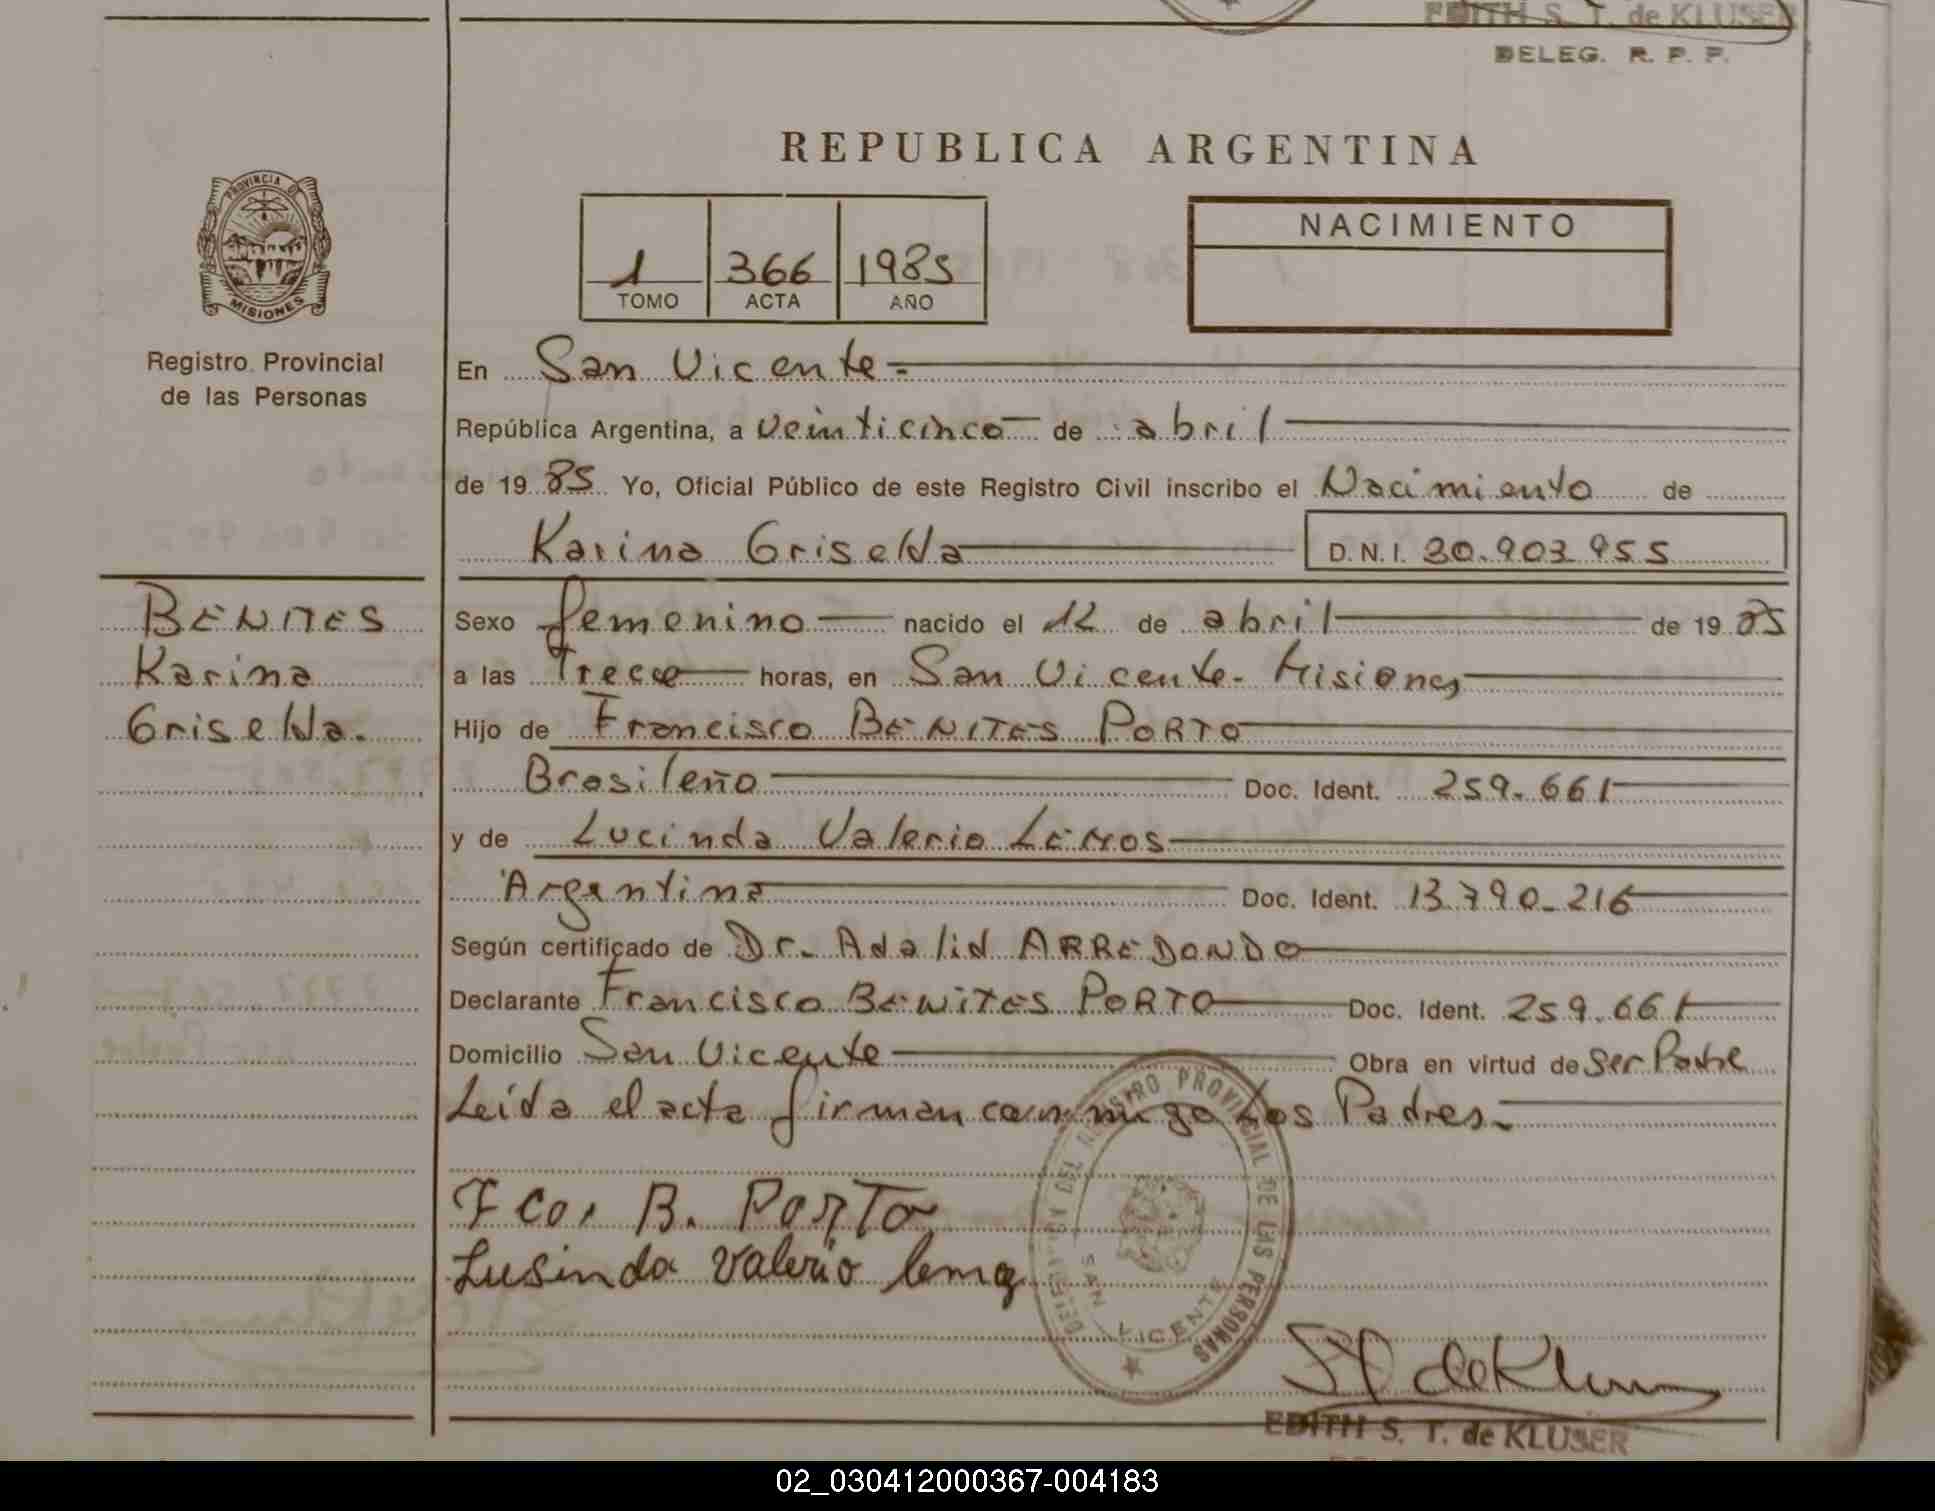 EDITH S. T. de KLUSER
DELEG. R. P. P.
REPUBLICA ARGENTINA
PROVINCIA DE
MISIONES
Registro Provincial
de las Personas
1 366 1985
TOMO ACTA AÑO
NACIMIENTO
En San Vicente.
República Argentina, a veinticinco de abril
de 19 85 Yo, Oficial Público de este Registro Civil inscribo el Nacimiento de
Karina Griselda D.N.I. 30.903.955
BENITES
Karina
Griselda.
Sexo femenino nacido el 12 de abril de 19 85
a las Trece horas, en San Vicente. Misiones
Hijo de Francisco BENITES PORTO
Brasileño Doc. Ident. 259.661
y de Lucinda Valerio LEMOS
Argentina Doc. Ident. 13.790.216
Según certificado de Dr. Adalid ARREDONDO
Declarante Francisco BENITES PORTO Doc. Ident. 259.661
Domicilio San Vicente Obra en virtud de ser Padre
Leída el acta firman conmigo Los Padres.
Fco. B. Porto
Lusinda Valerio lemo
REGISTRO PROVINCIAL DE LAS PERSONAS
SAN VICENTE
EDITH S. T. de KLUSER
02_030412000367-004183